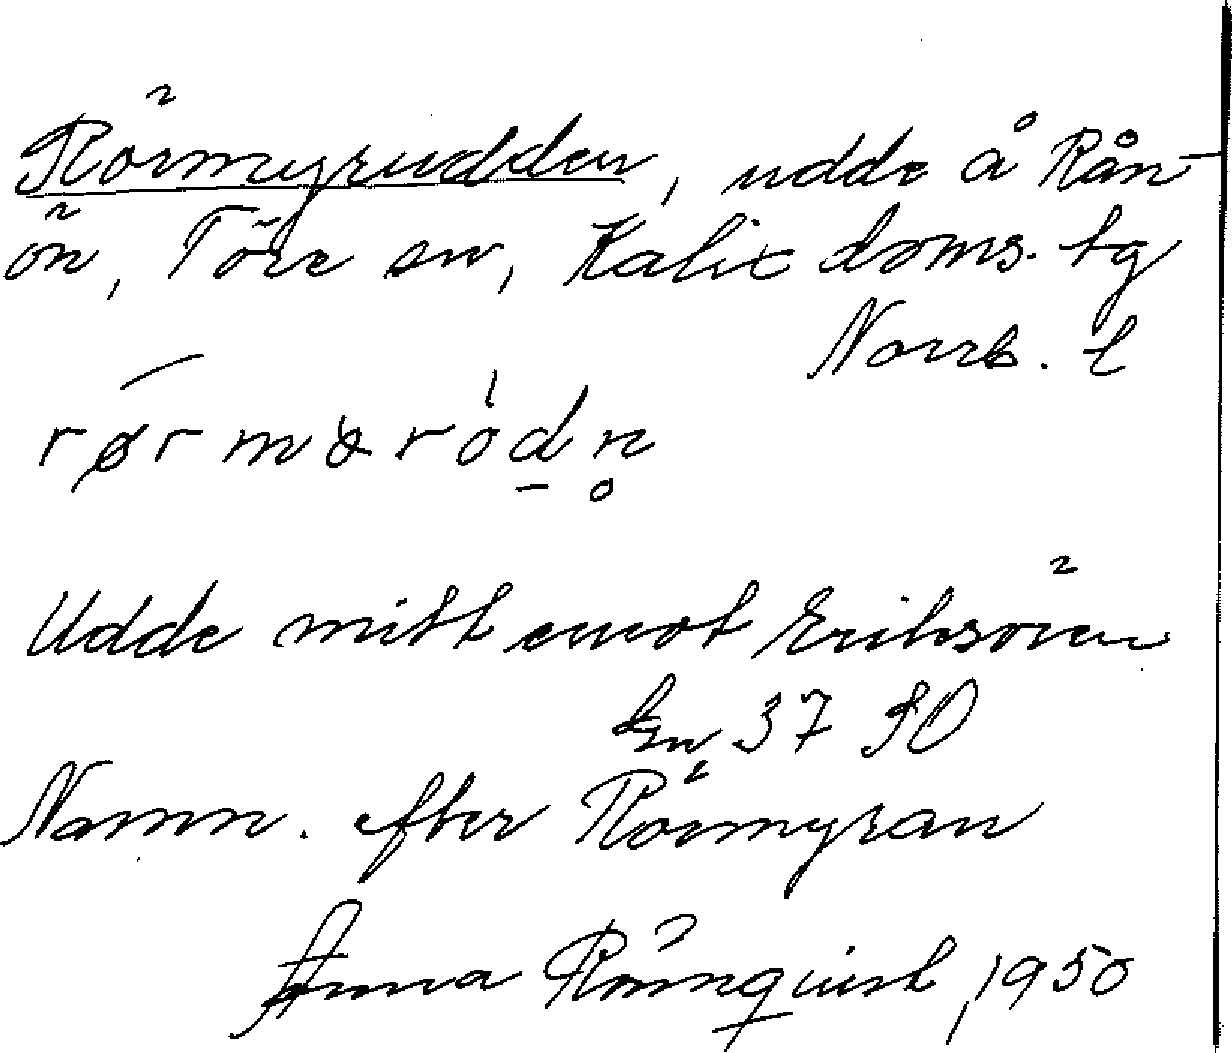 Rörmyrudden, udde å Rån-
ön, Töre sn, Kalix doms. tg
Norrb. l
rør mɤródn̥
Udde mitt emot Eriksören
kn 37 90
Namn. efter Rörmyran
Anna Rönnqvist, 1950